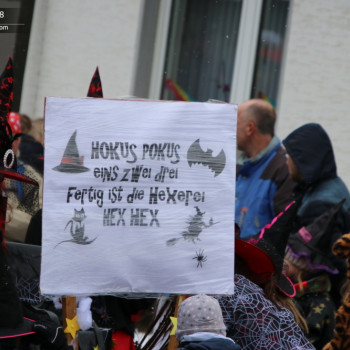 8
com
HOKUS POKUS
eiNS ZWei drei
Fertig ist die HeXerei
HEX HEX